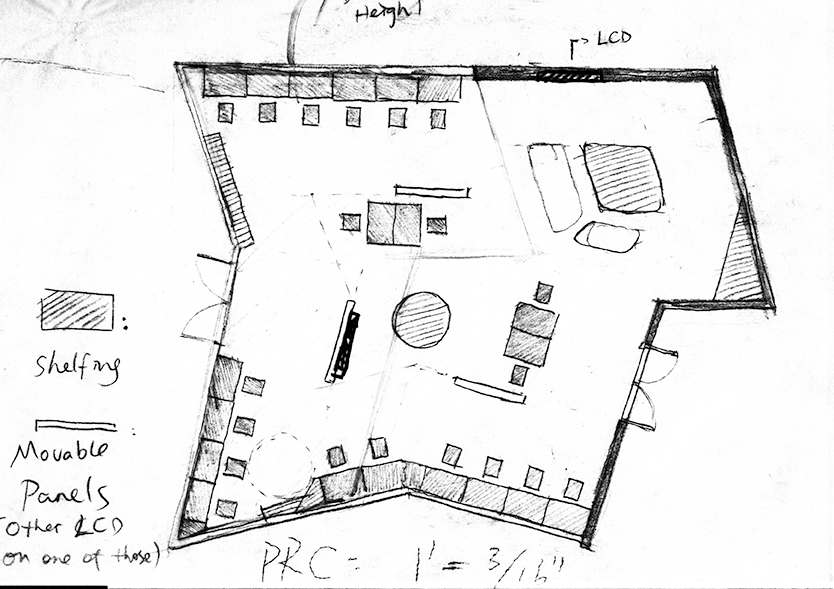 Height
LCD
:
Shelfing
:
Movable
Panels
(other LCD
on one of those)
PRC = 1' = 3/16"